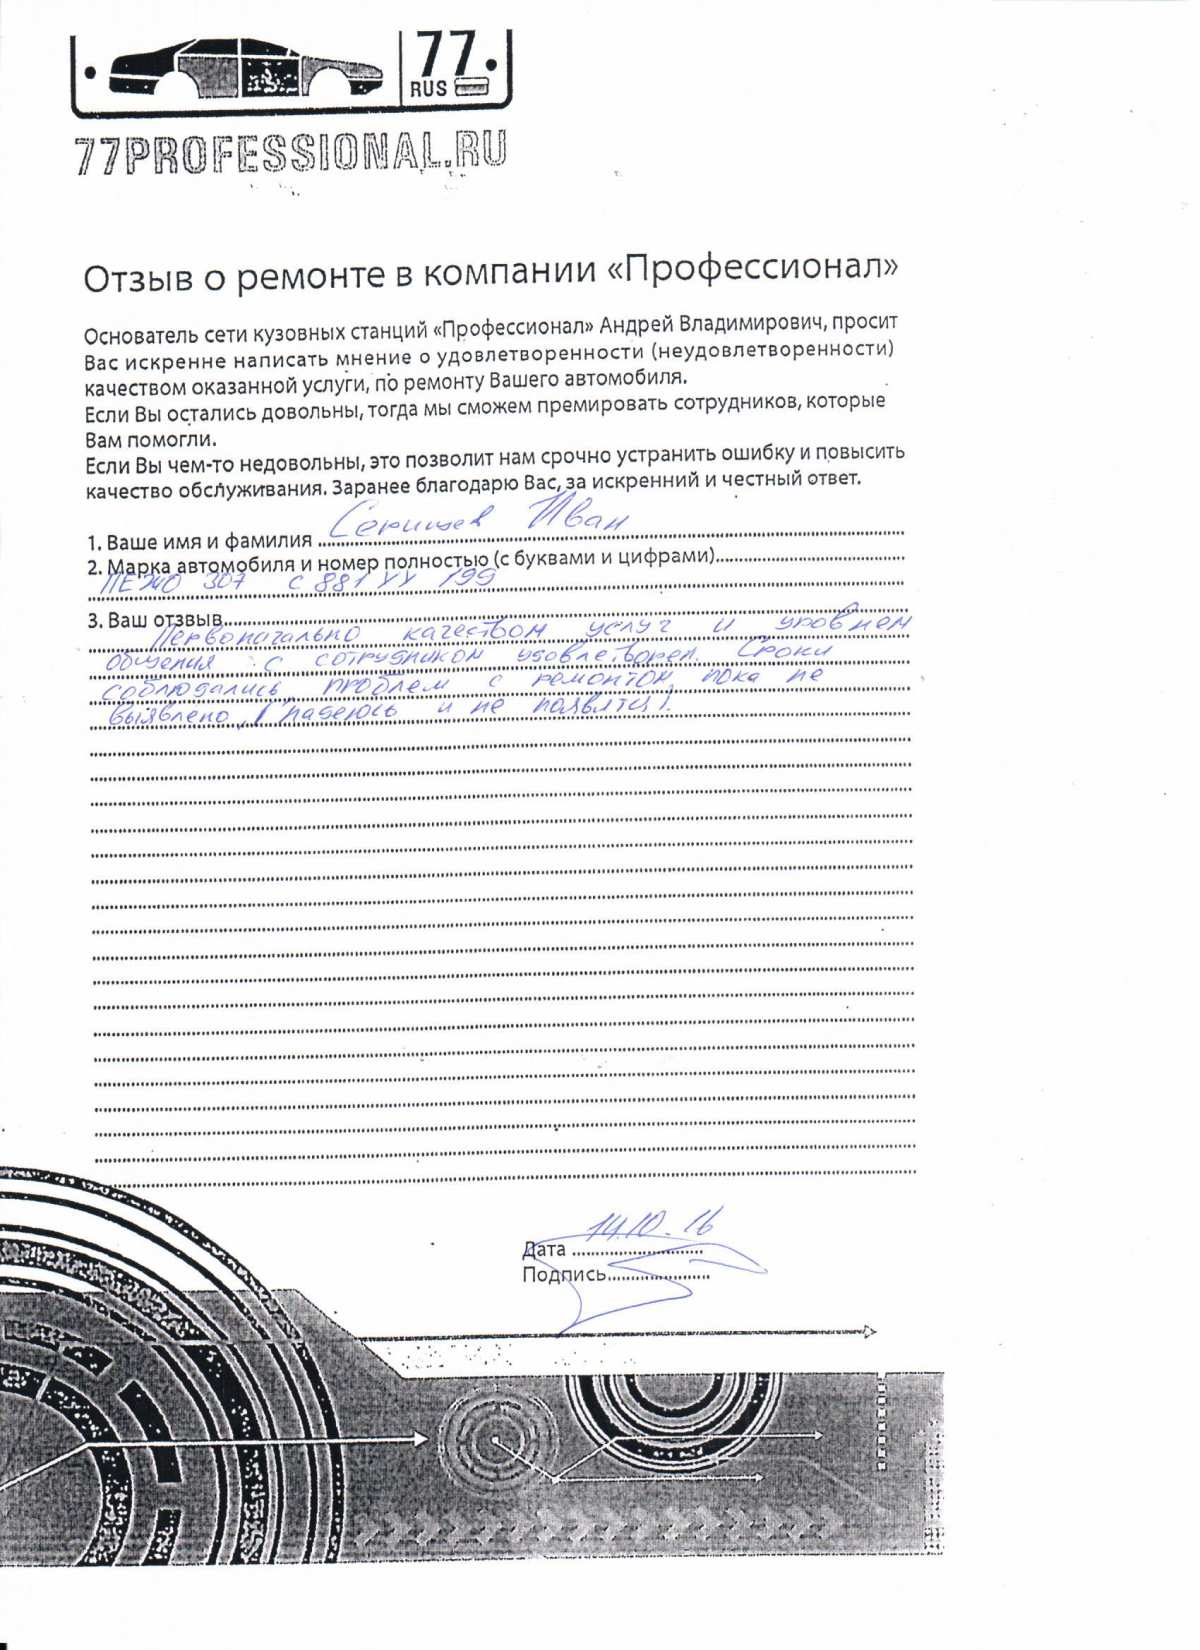 77
RUS
77PROFESSIONAL.RU
Отзыв о ремонте в компании «Профессионал»
Основатель сети кузовных станций «Профессионал» Андрей Владимирович, просит
Вас искренне написать мнение о удовлетворенности (неудовлетворенности)
качеством оказанной услуги, по ремонту Вашего автомобиля.
Если Вы остались довольны, тогда мы сможем премировать сотрудников, которые
Вам помогли.
Если Вы чем-то недовольны, это позволит нам срочно устранить ошибку и повысить
качество обслуживания. Заранее благодарю Вас, за искренний и честный ответ.
1. Ваше имя и фамилия Иван
2. Марка автомобиля и номер полностью (с буквами и цифрами)
ПЕЖО 307 С 881 УУ 199
3. Ваш отзвыв
Первоначально качеством услуг и уровнем
общения с сотрудником удовлетворен. Сроки
соблюдались, проблем с ремонтом пока не
выявлено, (надеюсь и не появятся).
Дата 14.10.16
Подпись